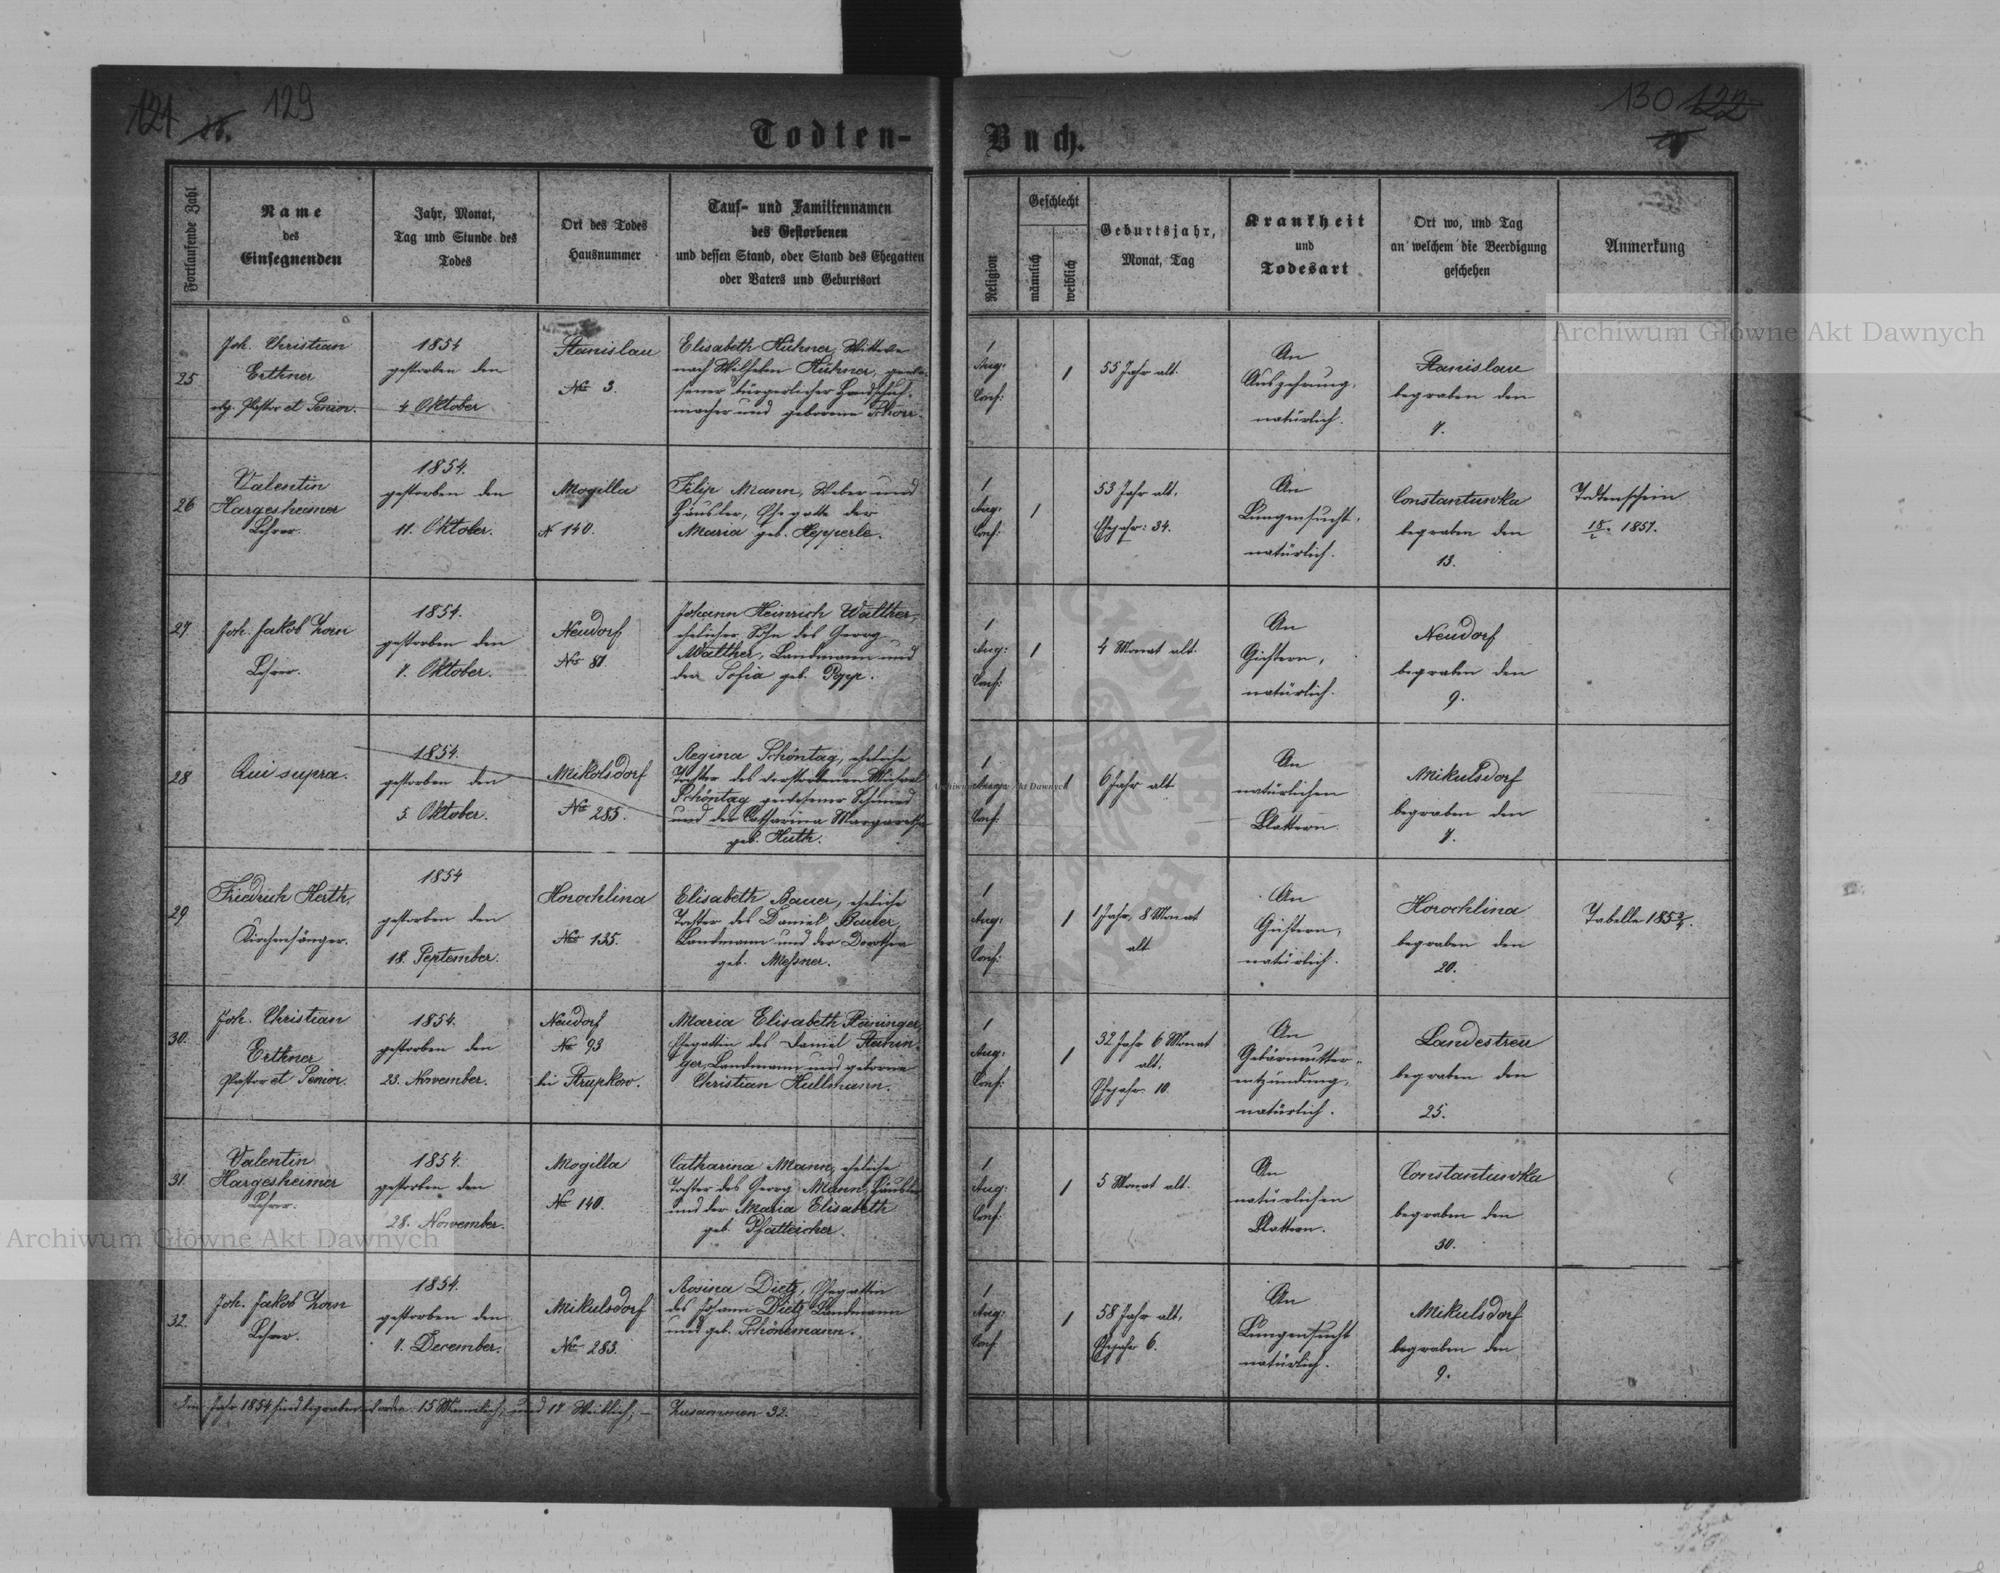 121 129
130 122
Todten-Buch.
Fortlaufende Zahl
Name
des
Einsegnenden
Jahr, Monat,
Tag und Stunde des
Todes
Ort des Todes
Hausnummer
Tauf- und Familiennamen
des Gestorbenen
und dessen Stand, oder Stand des Ehegatten
oder Vaters und Geburtsort
Religion
Geschlecht
männlich
weiblich
Geburtsjahr,
Monat, Tag
Krankheit
und
Todesart
Ort wo, und Tag
an welchem die Beerdigung
geschehen
Anmerkung
25
Joh. Christian
Erthner
Pastor et Senior.
1854
gestorben den
4 Oktober
Stanislau
No 3.
Elisabeth Hühner, Wittwe
nach Wilhelm Hühner, gewe-
sener bürgerlicher Handschuh-
macher und geborene Schorr.
1
Aug:
Conf:
1
55 Jahr alt.
An
Auszehrung,
natürlich.
Stanislau
begraben den
7.
26
Valentin
Hargesheimer
Lehrer.
1854.
gestorben den
11. Oktober.
Mogilla
N 140.
Filip Mann, Weber und
Häusler, Ehegatte der
Maria geb. Hepperle.
1
Aug:
Conf:
1
53 Jahr alt,
Ehejahr: 34.
An
Lungensucht,
natürlich.
Constantuwka
begraben den
13.
Todtenschein
1857.
27
Joh. Jakob Zorn
Lehrer.
1854.
gestorben den
7. Oktober.
Neudorf
No 81
Johann Heinrich Walther,
ehelicher Sohn des Georg
Walther, Landmann und
der Sofia geb. Popp.
1
Aug:
Conf:
1
4 Monat alt.
An
Gichtern,
natürlich.
Neudorf
begraben den
9.
28
Qui supra.
1854.
gestorben den
5. Oktober.
Mikolsdorf
No 285.
Regina Schöntag, eheliche
Tochter des verstorbenen Michael
Schöntag gewesener Schmied
und der Catharina Margaretha
geb. Huth.
1
Aug:
Conf:
1
6 Jahr alt
An
natürlichen
Blattern
Mikulsdorf
begraben den
7.
29
Friedrich Herth,
Kirchensänger.
1854
gestorben den
18. September.
Horochlina
No 135.
Elisabeth Bauer, eheliche
Tochter des Daniel Bauer,
Landmann und der Dorothea
geb. Meßner.
1
Aug:
Conf:
1
1 Jahr, 8 Monat
alt
An
Gichtern,
natürlich.
Horochlina
begraben den
20.
Tabelle 185¾.
30.
Joh. Christian
Erthner
Pastor et Senior.
1854.
gestorben den
23. November.
Neudorf
No 93
bei Strupkow.
Maria Elisabeth Reininger,
Ehegattin des Daniel Reinin-
ger, Landmann und geborne
Christian Hullmann.
1
Aug:
Conf:
1
32 Jahr 6 Monat
alt,
Ehejahr. 10.
An
Gebärmutter-
entzündung,
natürlich.
Landestreu
begraben den
25.
31.
Valentin
Hargesheimer
Lehrer.
1854.
gestorben den
28. November.
Mogilla
No 140.
Catharina Mann, eheliche
Tochter des Georg Mann, Häusler
und der Maria Elisabeth
geb. Pfatteicher.
1
Aug:
Conf:
1
5 Monat alt.
An
natürlichen
Blattern.
Constantuwka
begraben den
30.
32.
Joh. Jakob Zorn
Lehrer.
1854.
gestorben den
7. December.
Mikulsdorf
No 283.
Rosina Dietz, Ehegattin
des Johann Dietz Landmann
und geb. Schönemann.
1
Aug:
Conf
1
58 Jahr alt,
Ehejahr 6.
An
Lungensucht
natürlich.
Mikulsdorf
begraben den
9.
Im Jahr 1854 sind begraben worden 15 Männlich, und 17 Weiblich, – Zusammen 32.
Archiwum Główne Akt Dawnych
Archiwum Główne Akt Dawnych
Archiwum Główne Akt Dawnych